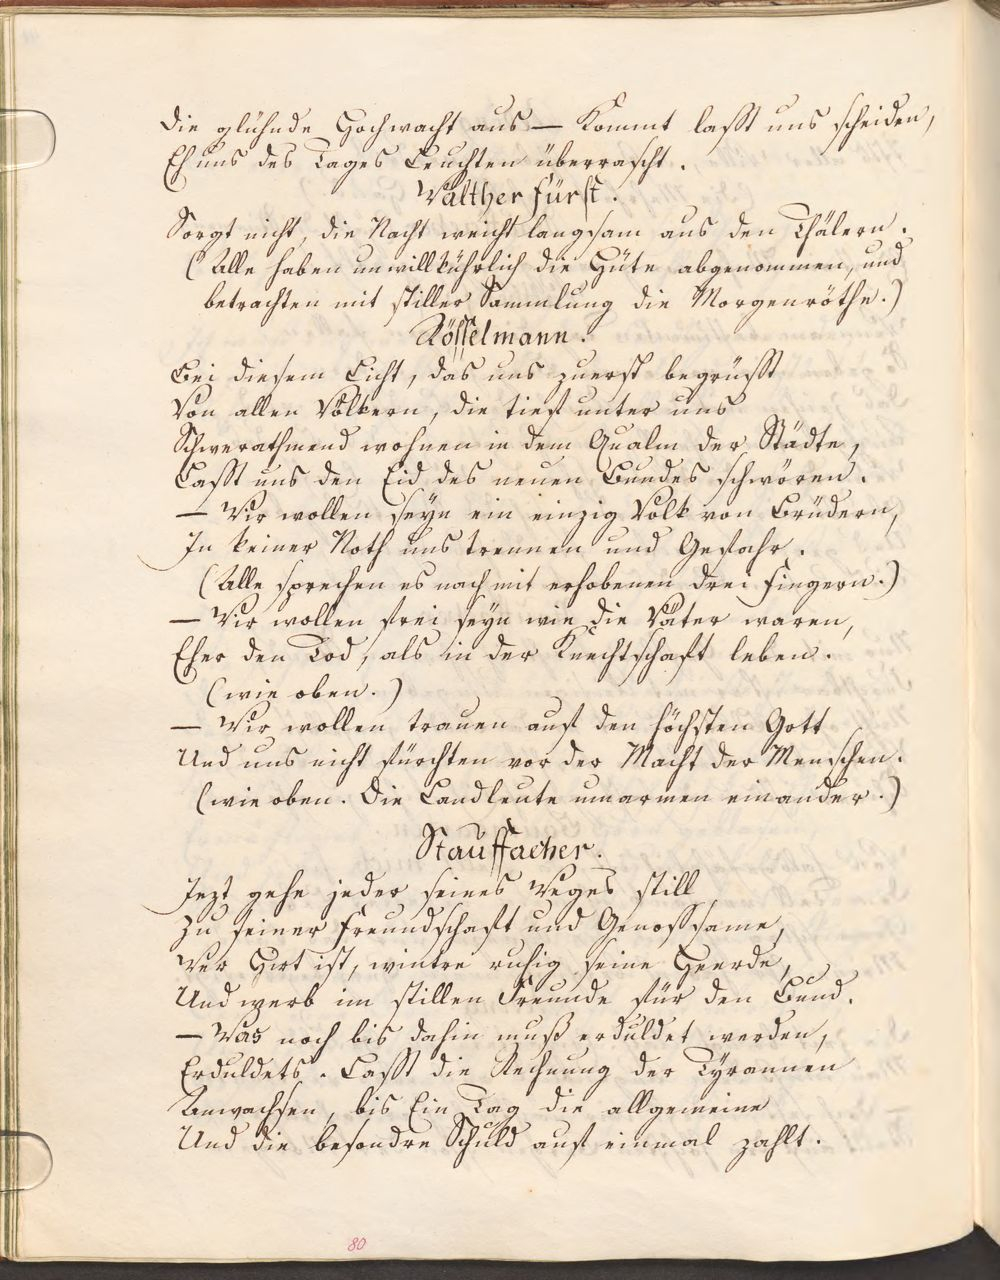 die glühnde Hochwacht aus — Kommt lasst uns scheiden,
Eh uns des Tages Leuchten überrascht.
Walther Fürst.
Sorgt nicht, die Nacht weicht langsam aus den Thälern.
(Alle haben unwillkührlich die Hüte abgenommen, und
betrachten mit stiller Sammlung die Morgenröthe.)
Rösselmann.
Bei diesem Licht, das uns zuerst begrüsst
Von allen Völkern, die tief unter uns
Schwerathmend wohnen in dem Qualm der Städte,
Lasst uns den Eid des neuen Bundes schwören.
— Wir wollen seyn ein einzig Volk von Brüdern,
In keiner Noth uns trennen und Gefahr.
(Alle sprechen es nach mit erhobenen drei Fingern.)
— Wir wollen frei seyn wie die Väter waren,
Eher den Tod, als in der Knechtschaft leben.
(wie oben.)
— Wir wollen trauen auf den höchsten Gott
Und uns nicht fürchten vor der Macht der Menschen.
(wie oben. Die Landleute umarmen einander.)
Stauffacher.
Jezt gehe jeder seines Weges still
Zu seiner Freundschaft und Genosssame,
Wer Hirt ist, wintre ruhig seine Heerde,
Und werb im stillen Freunde für den Bund.
— Was noch bis dahin muß erduldet werden,
Erduldets. Lasst die Rechnung der Tyrannen
Anwachsen, bis Ein Tag die allgemeine
Und die besondre Schuld auf einmal zahlt.
80